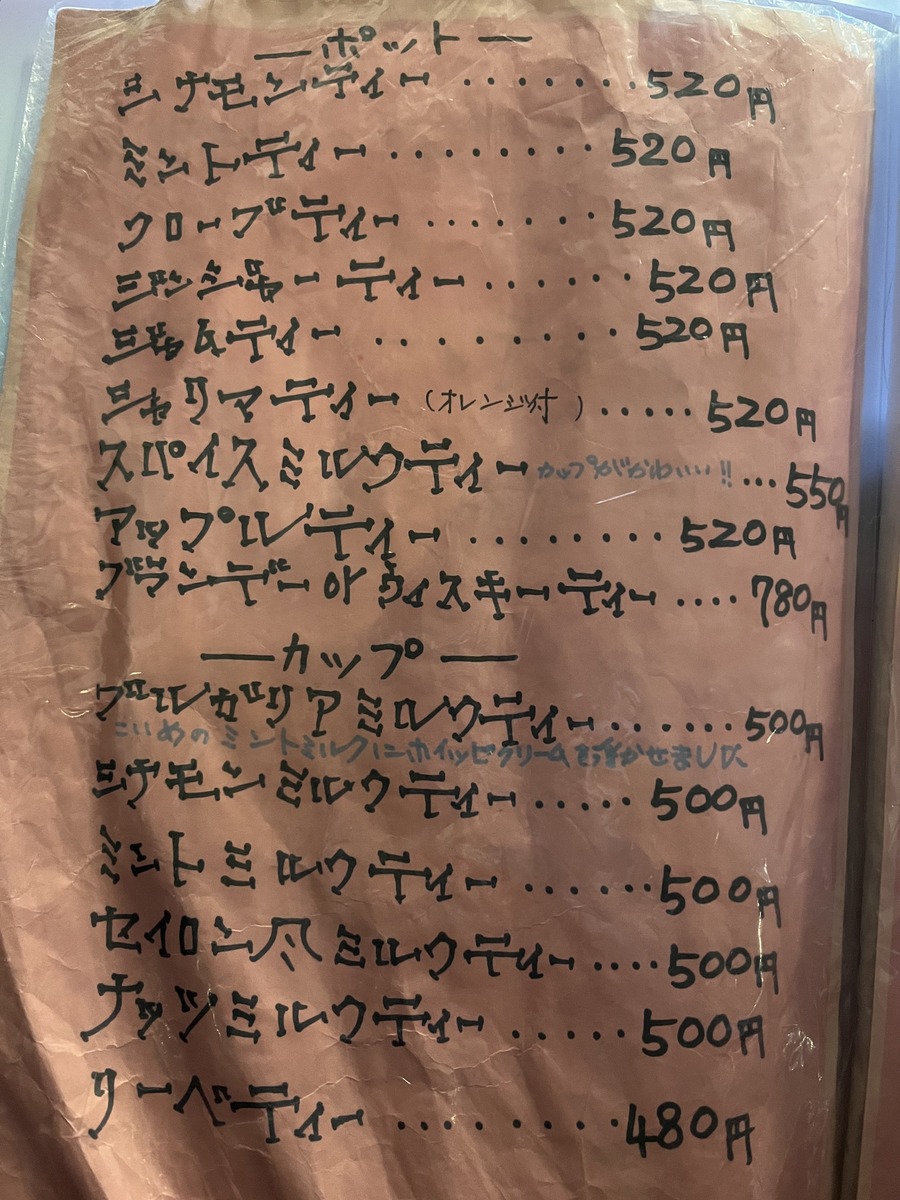 —ポット—
シナモンティー ········520円
ミントティー ·········520円
クローブティー ·······520円
ジンジャーティー ·······520円
ジャムティー ·········520円
シャリマティー (オレンジ付) ·····520円
スパイスミルクティー カップがかわいい!! ···550円
アップルティー ·········520円
ブランデーorウィスキーティー ····780円
—カップ—
ブルガリアミルクティー ·······500円
こいめのミントミルクにホイップクリームを浮かせました
シナモンミルクティー ·····500円
ミントミルクティー ······500円
セイロン風ミルクティー ····500円
ナッツミルクティー ······500円
リーベティー ·········480円